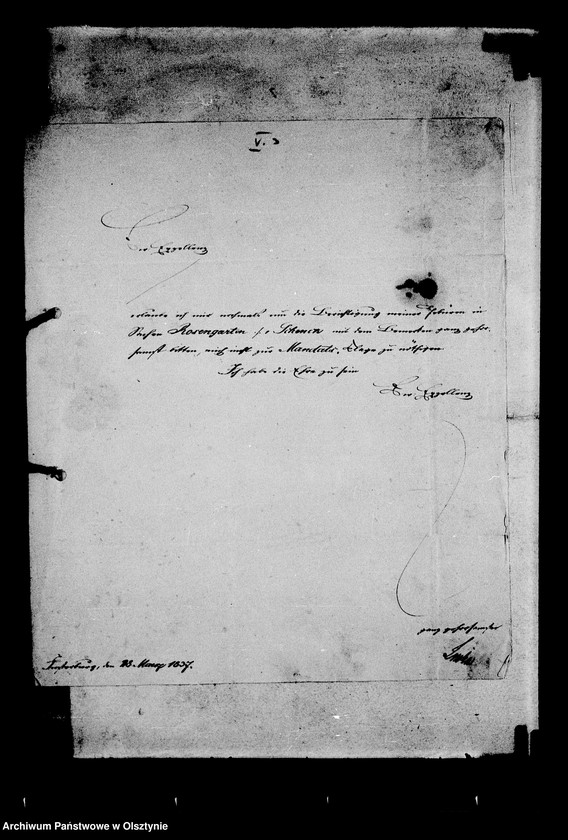 V. 3
Ew Excellenz
erlaube ich mir nochmals um die Berichtigung meiner Gebühren in
Sachen Rosengarten c/a Schoen mit dem Bemerken ganz gehor-
samst bitten, mich nicht zur Mandats-Klage zu nöthigen.
Ich habe die Ehre zu sein
Ew Excellenz
ganz gehorsamster
Insterburg, den 23. Maerz 1837.
Archiwum Państwowe w Olsztynie